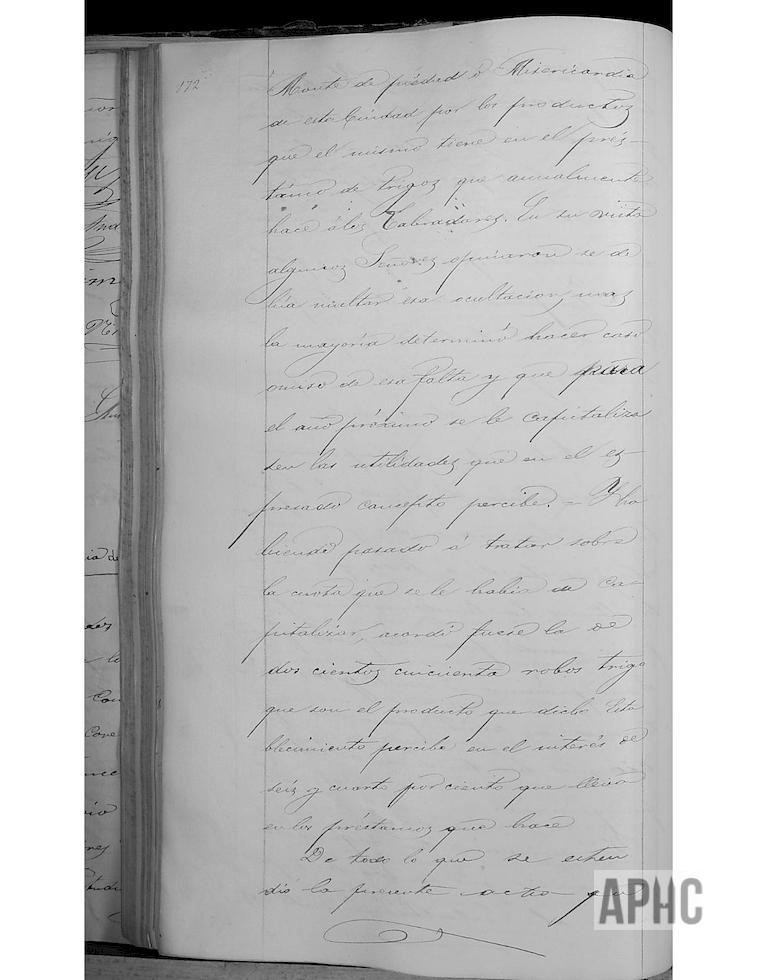 172
Monte de piedad ó Misericordia
de esta Ciudad por los productos
que el mismo tiene en el prés-
tamo de trigos que anualmente
hace á los Labradores. En su vista
algunos Señores opinaron se de
bía multar esa ocultacion, mas
la mayoría determinó hacer caso
omiso de esa falta y que para
el año próximo se le capitaliza
sen las utilidades que en el es-
presado concepto percibe. = Y ha
biendo pasado á tratar sobre
la cuota que se le había de Ca-
pitalizar, acordó fuese la de
dos cientos cincuenta robos trigo
que son el producto que dicho Esta
blecimiento percibe en el interés de
seis y cuarto por ciento que lleva
en los préstamos que hace
De todo lo que se esten
dió la presente acta que
APHC